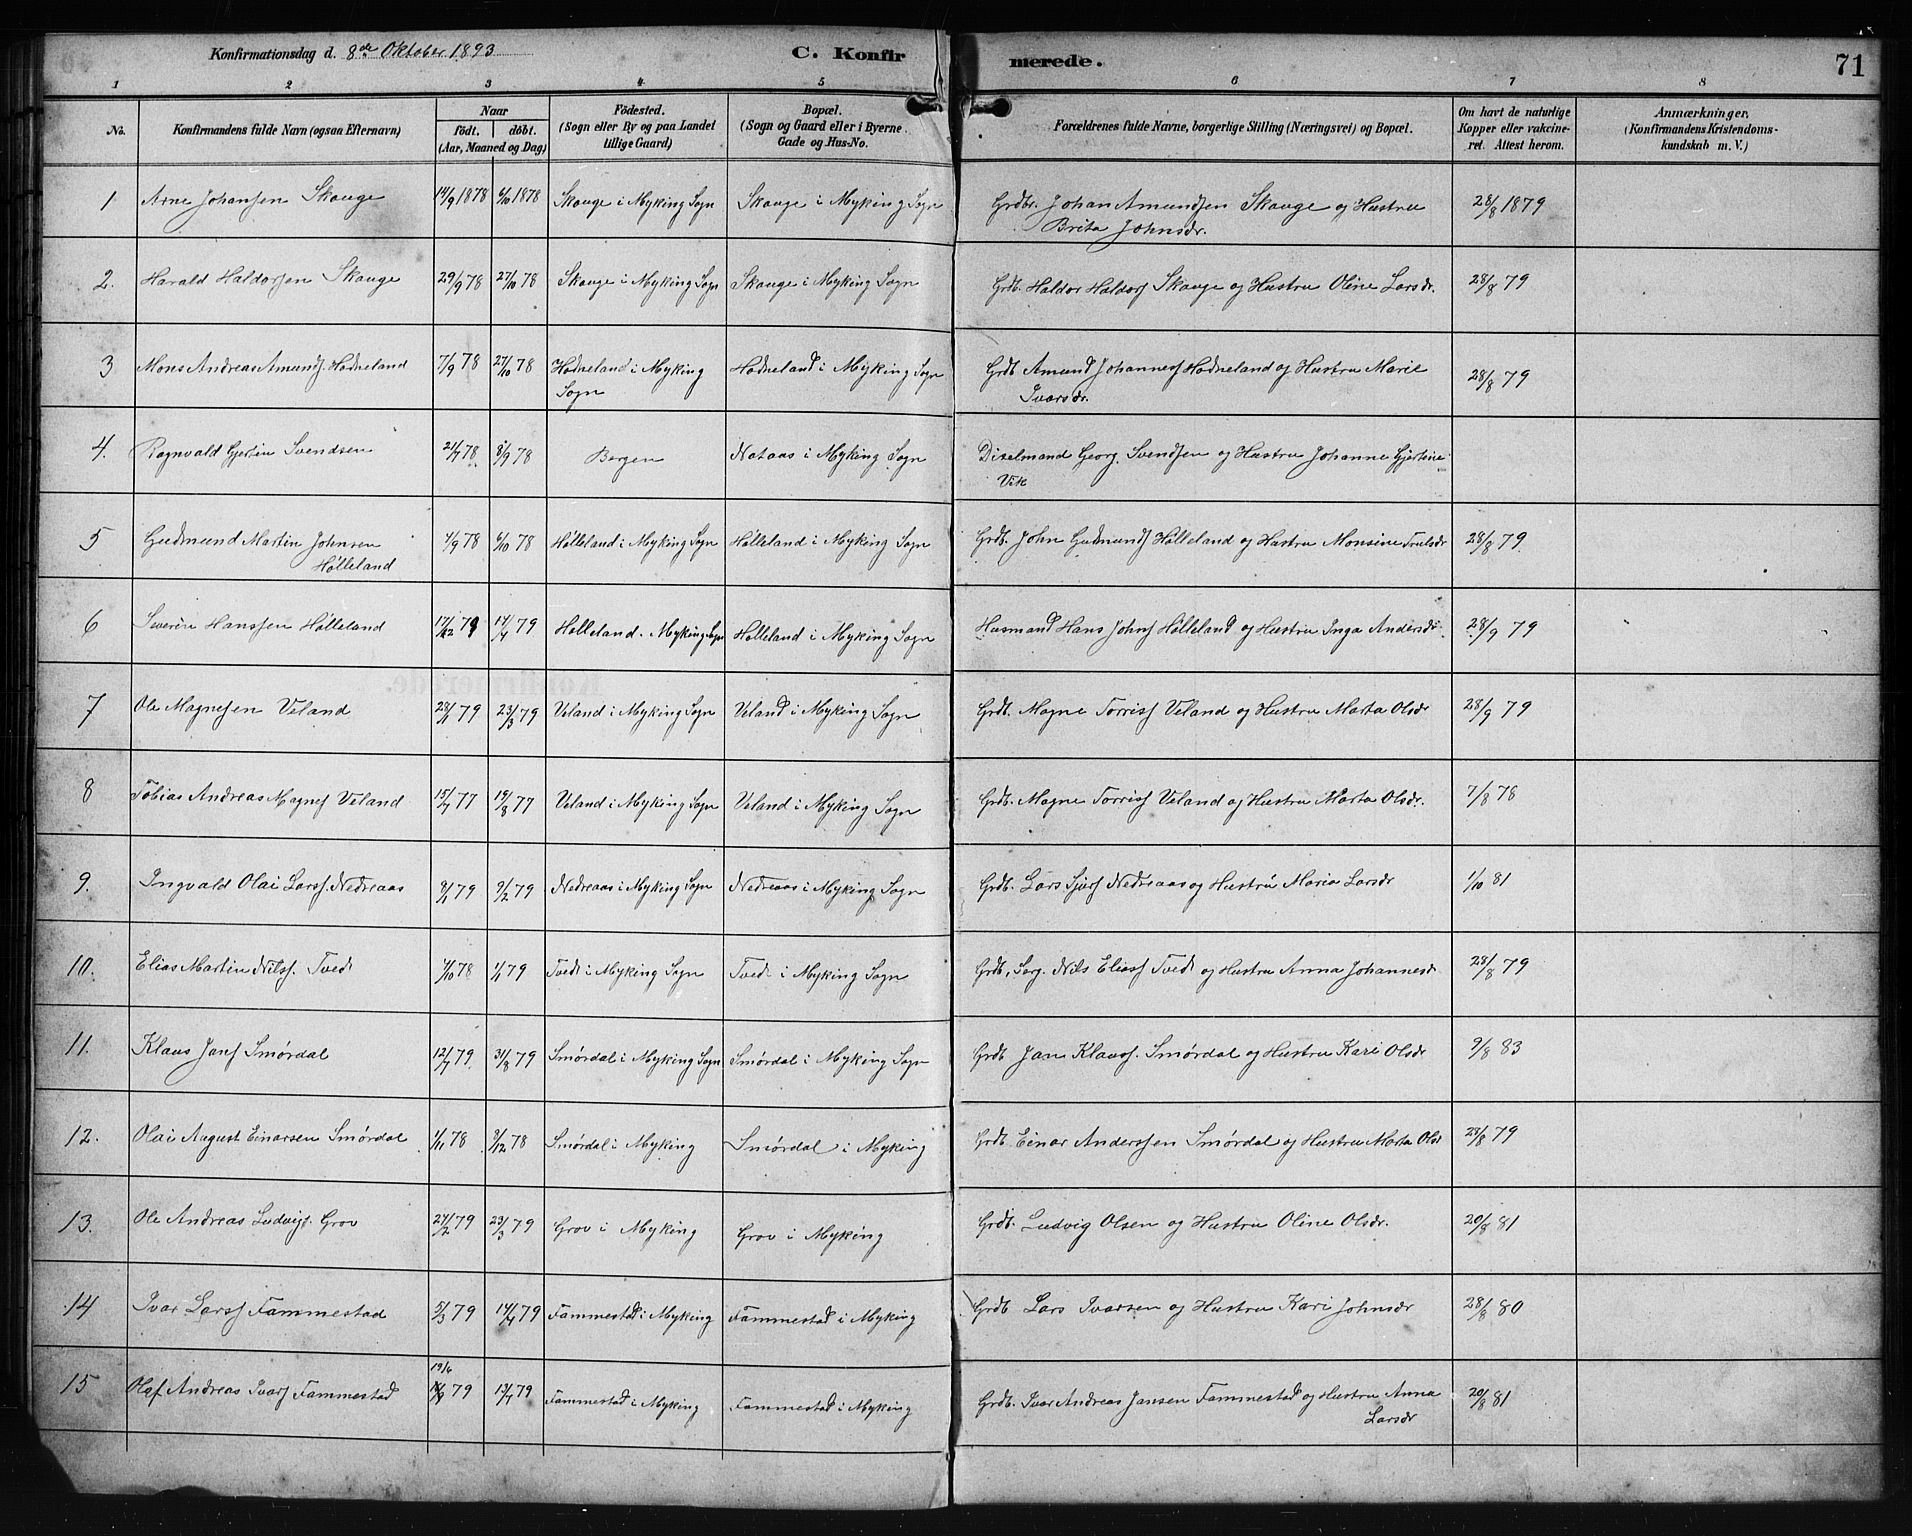 Konfirmationsdag d. 8de Oktober 1893 C. Konfirmerede. 71
1 2 3 4 5 6 7 8
No. Konfirmandens fulde Navn (ogsaa Efternavn) Naar födt. döbt. (Aar, Maaned og Dag) Födested. (Sogn eller By og paa Landet tillige Gaard) Bopæl. (Sogn og Gaard eller i Byerne Gade og Hus-No. Forældrenes fulde Navne, borgerlige Stilling (Næringsvei) og Bopæl. Om havt de naturlige Kopper eller vakcineret. Attest herom. Anmærkninger, (Konfirmandens Kristendomskundskab m. V.)
1 Arne Johansen Skauge 14/9 1878 6/10 1878 Skauge i Myking Sogn Skauge i Myking Sogn Grdbr. Johan Amundsen Skauge og Hustru 28/8 1879
Brita Johnsdr.
2. Harald Haldorsen Skauge 29/9 78 27/10 78 Skauge i Myking Sogn Skauge i Myking Sogn Grdb. Haldor Haldors Skauge og Hustru Oline Larsdr. 28/8 79
3 Mons Andreas Amunds. Hodneland 7/9 78 27/10 78 Hodneland i Myking Hodneland i Myking Sogn Grdb Amund Johanness Hodneland og Hustru Marie 28/8 79
Sogn Ivarsdr.
4. Ragnvald Gjertin Svendsen 21/7 78 8/9 78 Bergen Nataas i Myking Sogn Dixelmand Georg Svendsen og Hustru Johanne Gjertine
Vik
5 Gudmund Martin Johnsen 7/9 78 6/10 78 Hølleland i Myking Sogn Hølleland i Myking Sogn Grdb. John Gudmunds Hølleland og Hustru Monsine Trulsdr 28/8 79.
Hølleland
6 Severin Hanssen Hølleland 17/12 78 14/4 79 Hølleland. Myking Sogn Hølleland i Myking Sogn Husmand Hans Johns Hølleland og Hustru Inga Andersdr. 28/9 79
7 Ole Magnesen Veland 28/1 79 23/3 79 Veland i Myking Sogn Veland i Myking Sogn Grdb. Magne Torriss Veland og Hustru Marta Olsdr 28/9 79
8 Tobias Andreas Magnes Veland 15/7 77 19/8 77 Veland i Myking Sogn Veland i Myking Sogn Grdb. Magne Torriss Veland og Hustru Marta Olsdr. 7/8 78
9. Ingvald Olai Larss. Nedreaas 8/1 79 9/2 79 Nedreaas i Myking Sogn Nedreaas i Myking Sogn Grdb. Lars Sjurs Nedreaas og Hustru Maria Larsdr 1/10 81
10. Elias Martin Nilss. Tvedt 4/10 78 1/1 79 Tvedt i Myking Sogn Tvedt i Myking Sogn Grdb, Serg. Nils Eliass Tvedt og Hustru Anna Johannesdr 28/8 79
11. Klaus Jans Smørdal 12/7 79. 31/8 79 Smørdal i Myking Sogn Smørdal i Myking Sogn Grdb Jan Klauss. Smørdal og Hustru Kari Olsdr 9/8 83
12. Olai August Einarsen Smørdal 1/11 78 3/12 78 Smørdal i Myking Smørdal i Myking Grdb. Einar Anderssen Smørdal og Hustru Marta Olsdr 28/8 79
13. Ole Andreas Ludvigs. Grov 24/2 79 23/3 79 Grov i Myking Grov i Myking Grdb. Ludvig Olsen og Hustru Oline Olsdr. 20/8 81
14 Ivar Larss Fammestad 5/3 79 14/4 79 Fammestad i Myking Fammestad i Myking Grdb Lars Ivarsen og Hustru Kari Johnsdr 28/8 80
15 Olaf Andreas Ivars Fammestad 19/6 79 13/7 79 Fammestad i Myking Fammestad i Myking Grdb. Ivar Andreas Jansen Fammestad og Hustru Anna 20/8 81
Larsdr